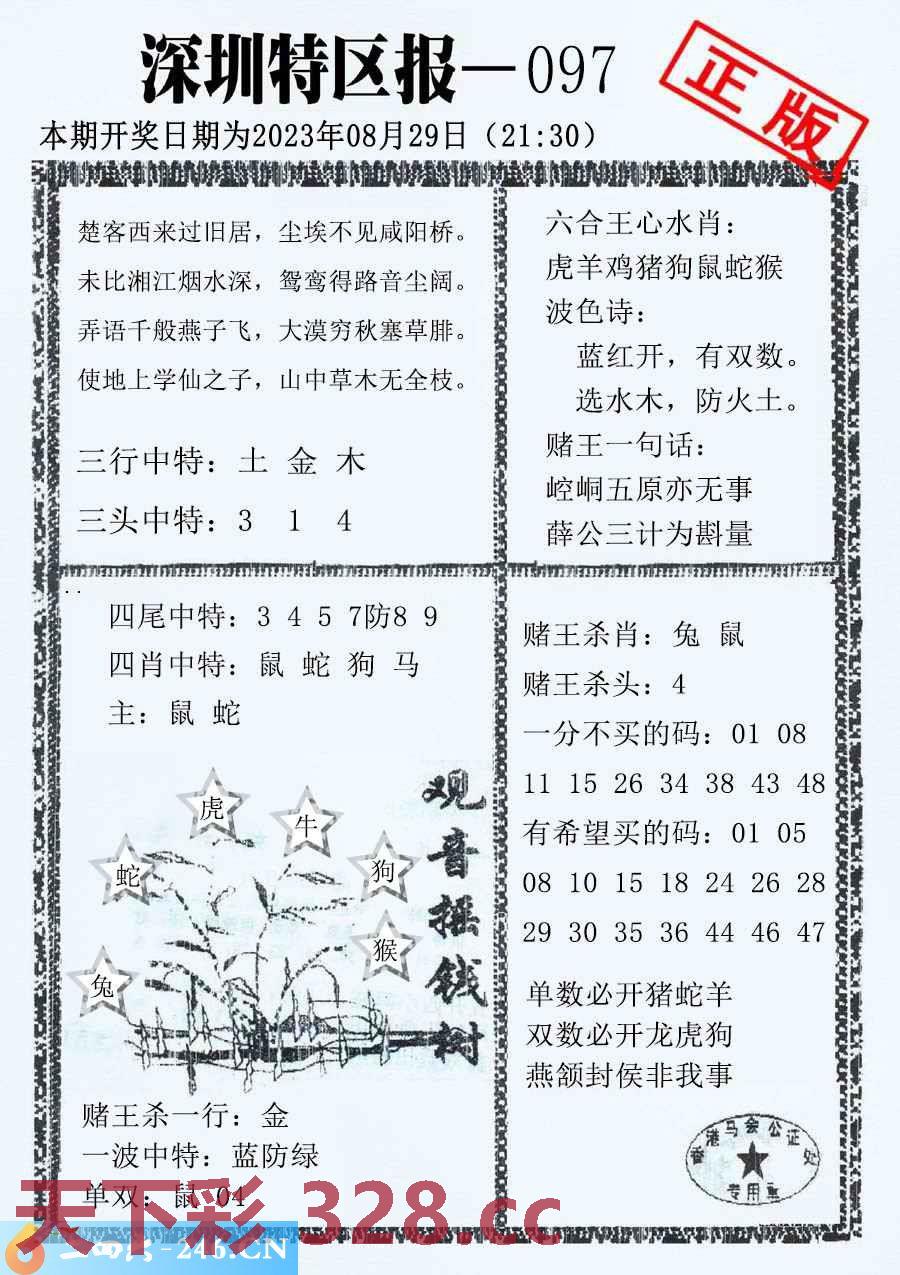 深圳特区报—097
正版
本期开奖日期为2023年08月29日（21:30）
楚客西来过旧居，尘埃不见咸阳桥。
未比湘江烟水深，鸳鸾得路音尘阔。
弄语千般燕子飞，大漠穷秋塞草腓。
使地上学仙之子，山中草木无全枝。
三行中特：土 金 木
三头中特：3 1 4
六合王心水肖：
虎羊鸡猪狗鼠蛇猴
波色诗：
蓝红开，有双数。
选水木，防火土。
赌王一句话：
崆峒五原亦无事
薛公三计为斟量
四尾中特：3 4 5 7防8 9
四肖中特：鼠 蛇 狗 马
主：鼠 蛇
观音摇钱树
虎
牛
蛇
狗
猴
兔
赌王杀一行：金
一波中特：蓝防绿
单双：鼠 04
赌王杀肖：兔 鼠
赌王杀头：4
一分不买的码：01 08
11 15 26 34 38 43 48
有希望买的码：01 05
08 10 15 18 24 26 28
29 30 35 36 44 46 47
单数必开猪蛇羊
双数必开龙虎狗
燕颔封侯非我事
香港马会公证处
专用章
天下彩 328.cc
-246.CN